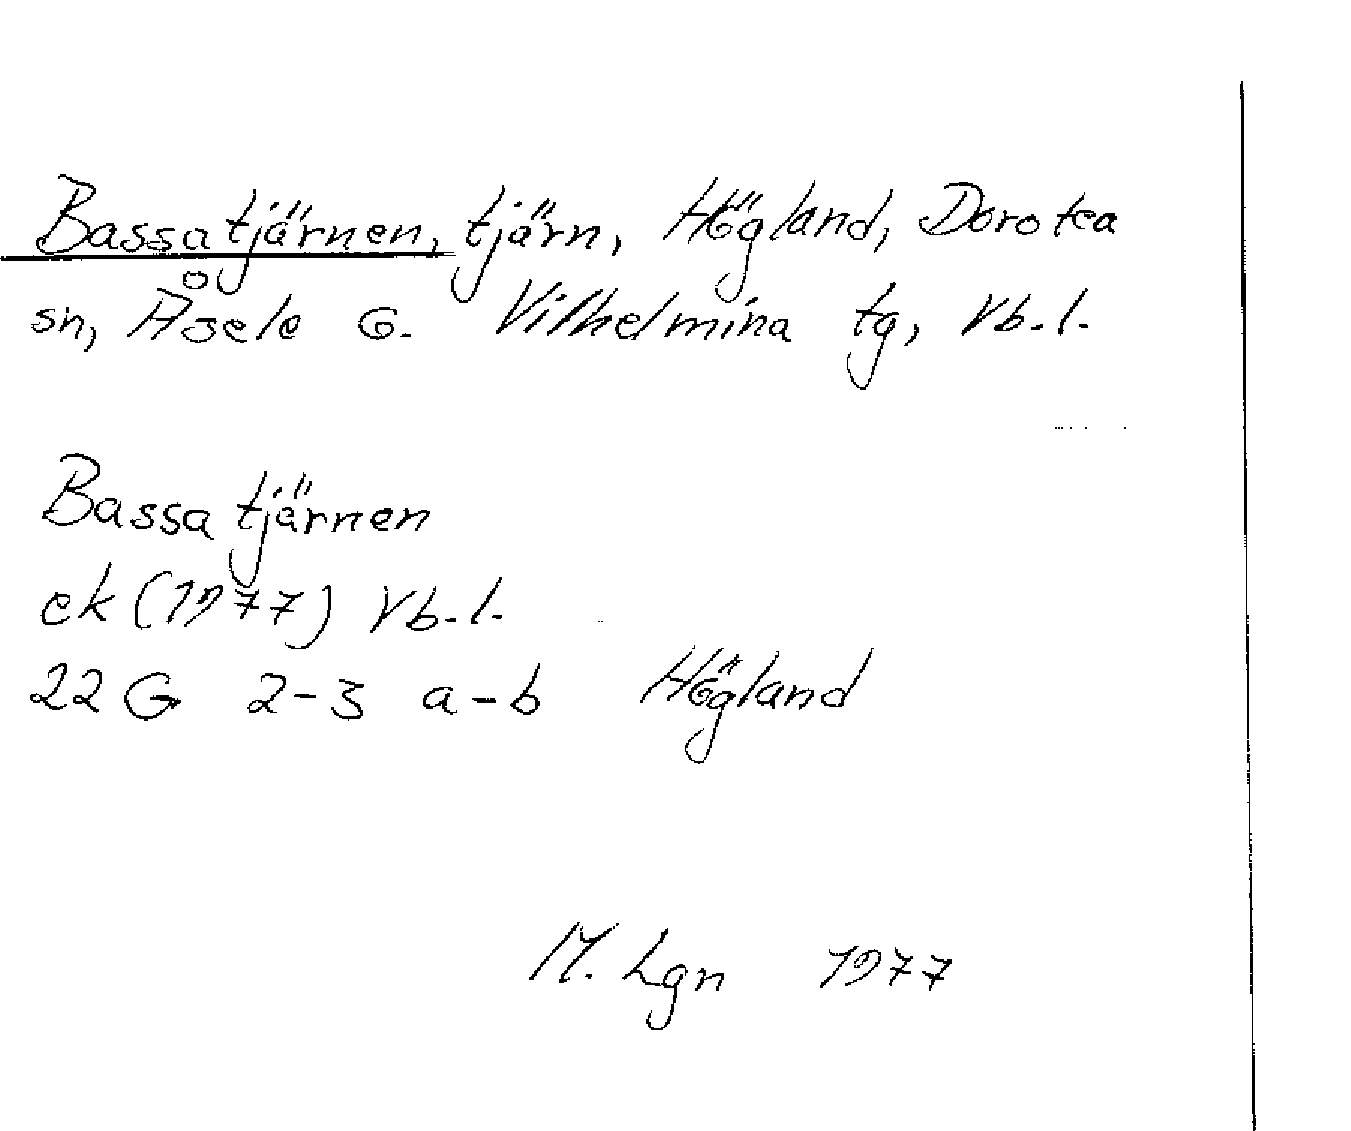 Bassatjärnen, tjärn, Högland, Dorotea
sn, Åsele G. Vilhelmina tg, Vb.l.
Bassatjärnen
ek (1977) Vb.l.
22 G 2-3 a-b Högland
M. Lgn 1977